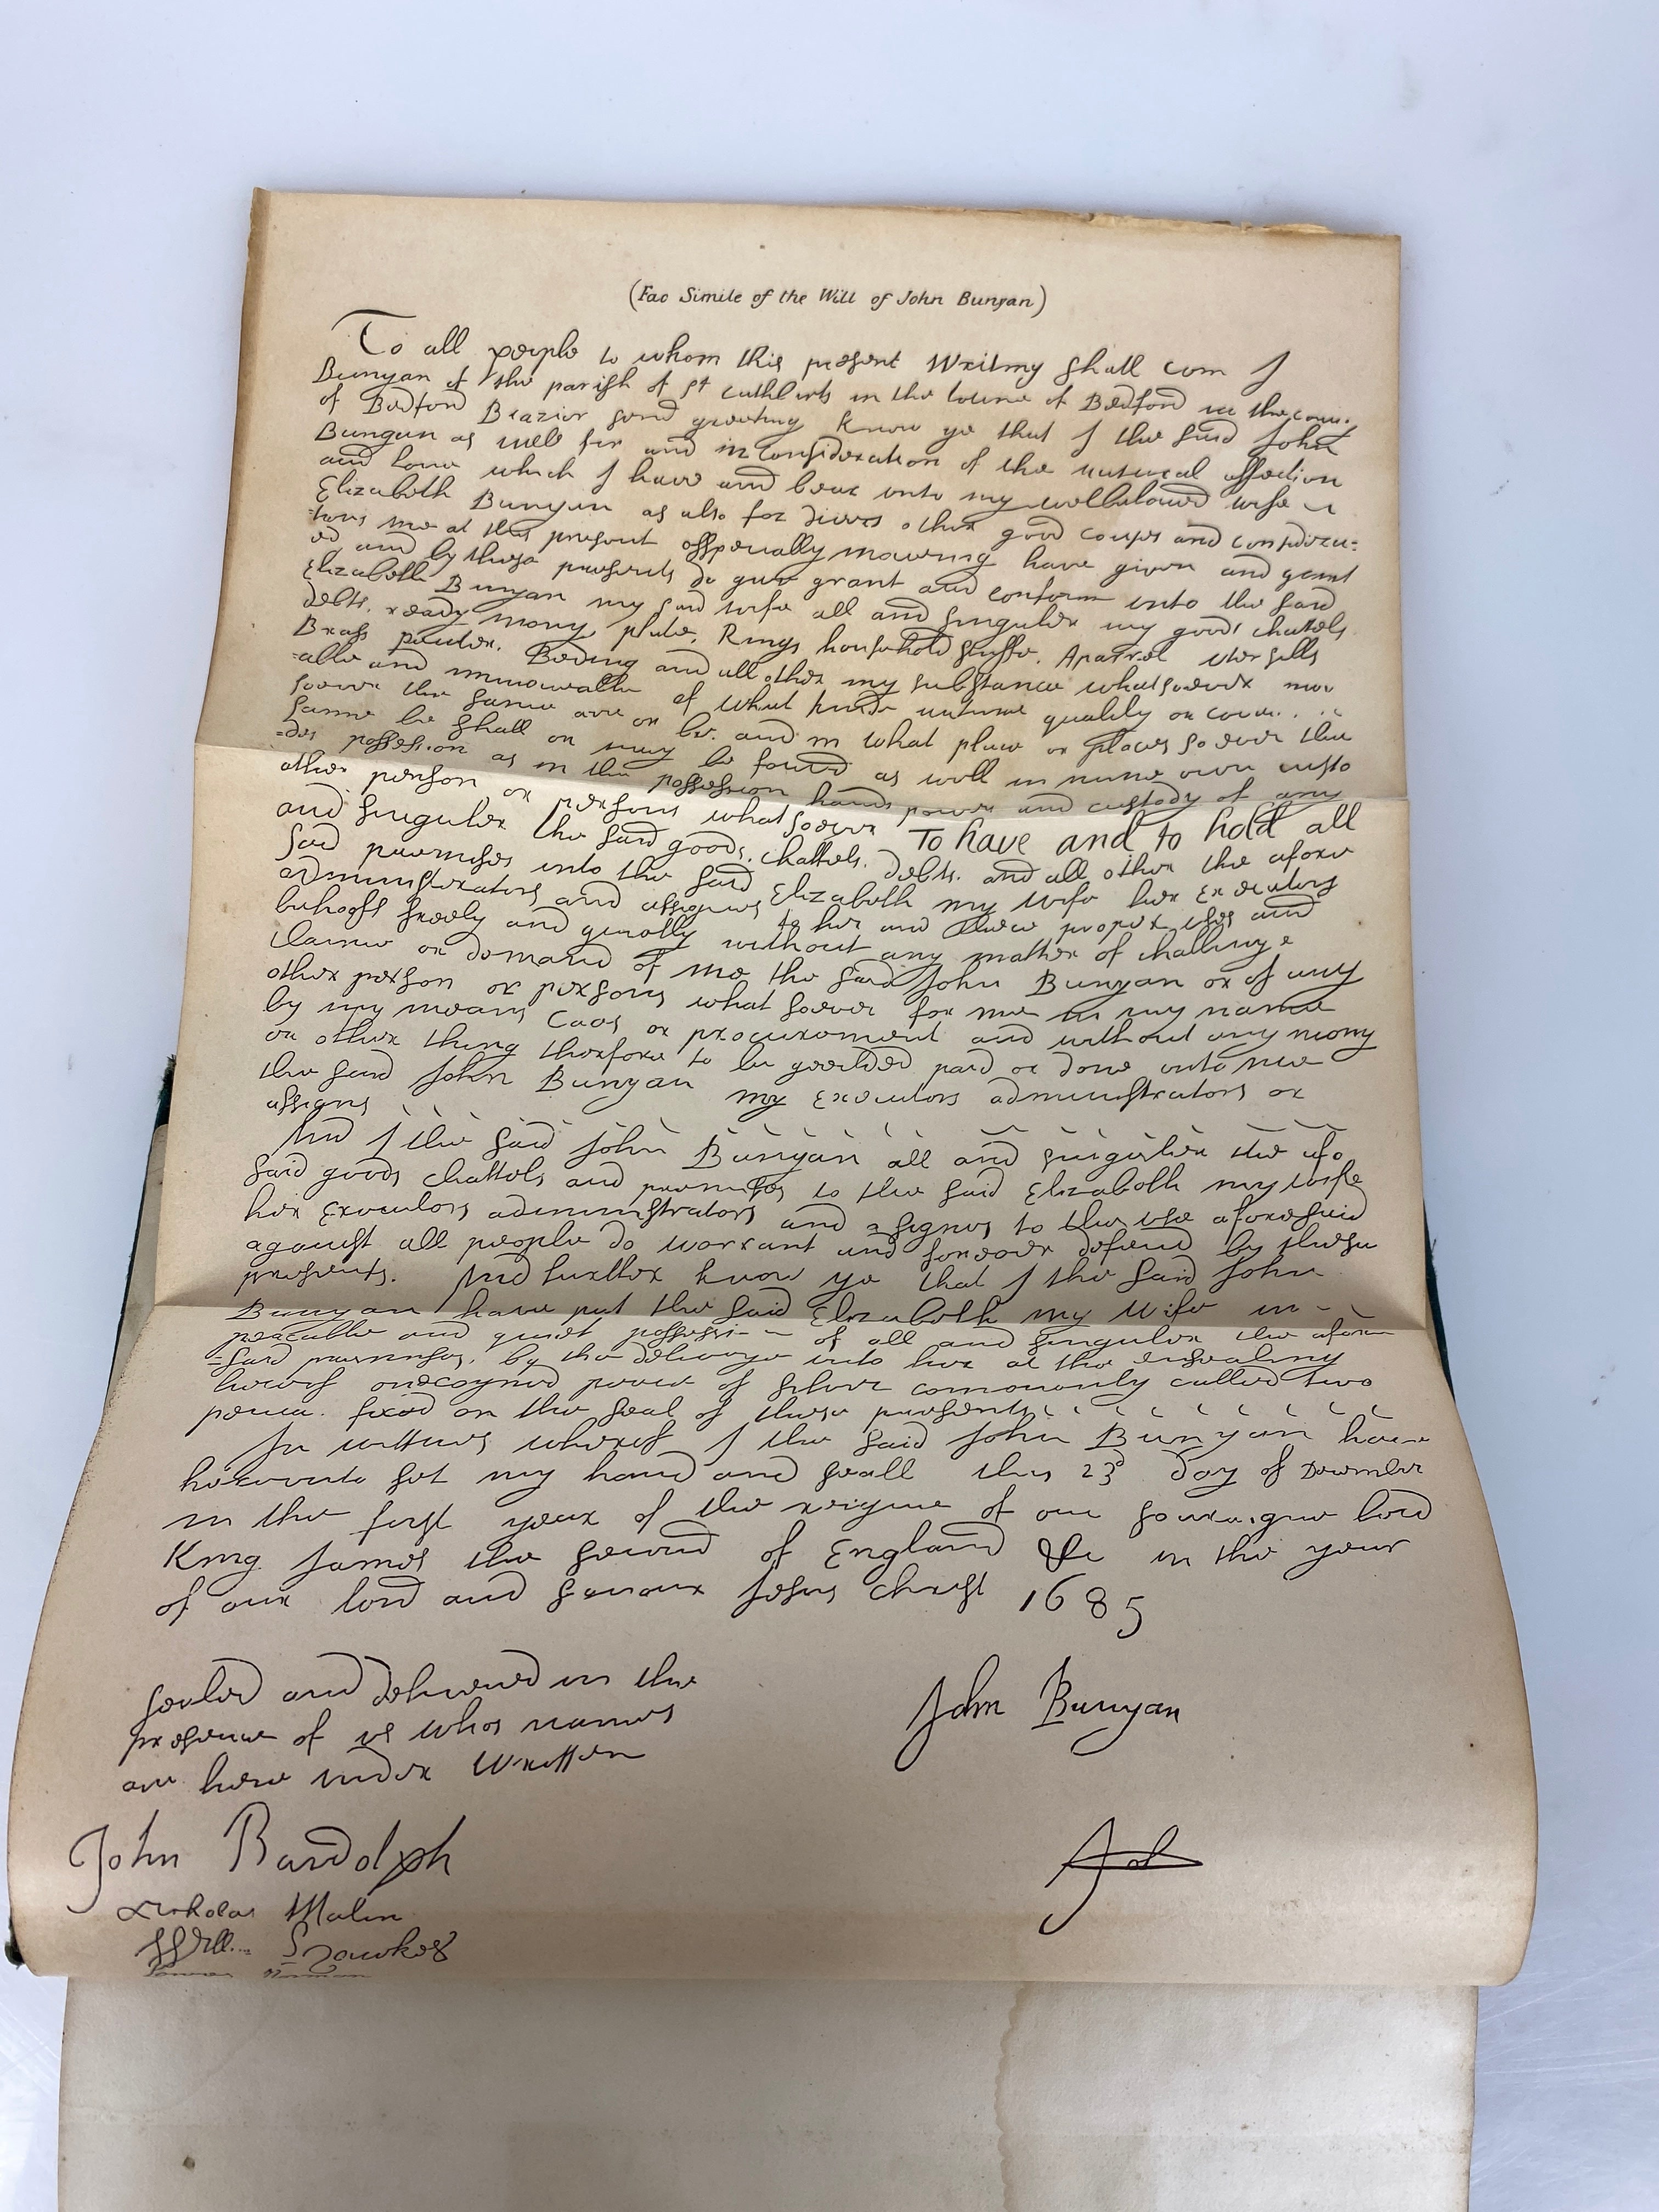 (Fac Simile of the Will of John Bunyan)
To all people to whom this present Writing shall com I
Bunyan of the parish of st Cuthberts in the towne of Bedford in the coun:
of Bedford Brazier send greeting Know ye that I the said John
Bunyan as well for and in Consideration of the natural affection
and Love which I have and bear unto my wellbeloued wife
Elizabeth Bunyan as also for diuers other good causes and considera:
=tions me at this present esspecially moueing have given and grant
ed and by these presents do give grant and conform unto the said
Elizabeth Bunyan my said wife all and singuler my goods chattels
debts. ready mony, plate. Rings household stuffe. Aparrel utensills
Brass pewter. Beding and all other my substance whatsoever mov
=able and immoveable of what kinde nature quality or
soever the same are or be. and in what place or places soever the
same be shall or may be found as well in mine own custo
=des possession as in the possession hands power and custody of any
other person or persons whatsoever To have and to hold all
and singuler the said goods. chattels. debts. and all other the afore
said premises unto the said Elizabeth my wife her executors
administrators and assignes to her and their proper uses and
behoofs freely and quietly without any matter of challinge
claime or demand of me the said John Bunyan or of any
other person or persons what soever for me in my name
by my means Caos or procurement and without any mony
or other thing therfore to be yeelded paid or done unto me
the said John Bunyan my executors administrators or
assigns
And I the said John Bunyan all and singuler the afo
said goods chattels and premises to the said Elizabeth my wife
her executors administrators and asignes to the use aforesaid
against all people do warrant and forever defend by these
presents. And further know ye that I the said John
Bunyan have put the said Elizabeth my Wife in -
peacable and quiet possession of all and singuler the afore
=said premises. by the deliverye unto her at the ensealing
hereof one coyned peece of silver commonly called two
pence. fixed on the seal of these presents
In wittnes whereof I the said John Bunyan have
hereunto set my hand and seall this 23d day of December
in the first year of the reigne of our soueraigne lord
King James the second of England &c in the year
of our lord and saviour Jesus Christ 1685
sealed and delivered in the
presence of us whos names
are here under Written
John Bunyan
John Bardolph
Nicholas Malin
Will... Hawkes